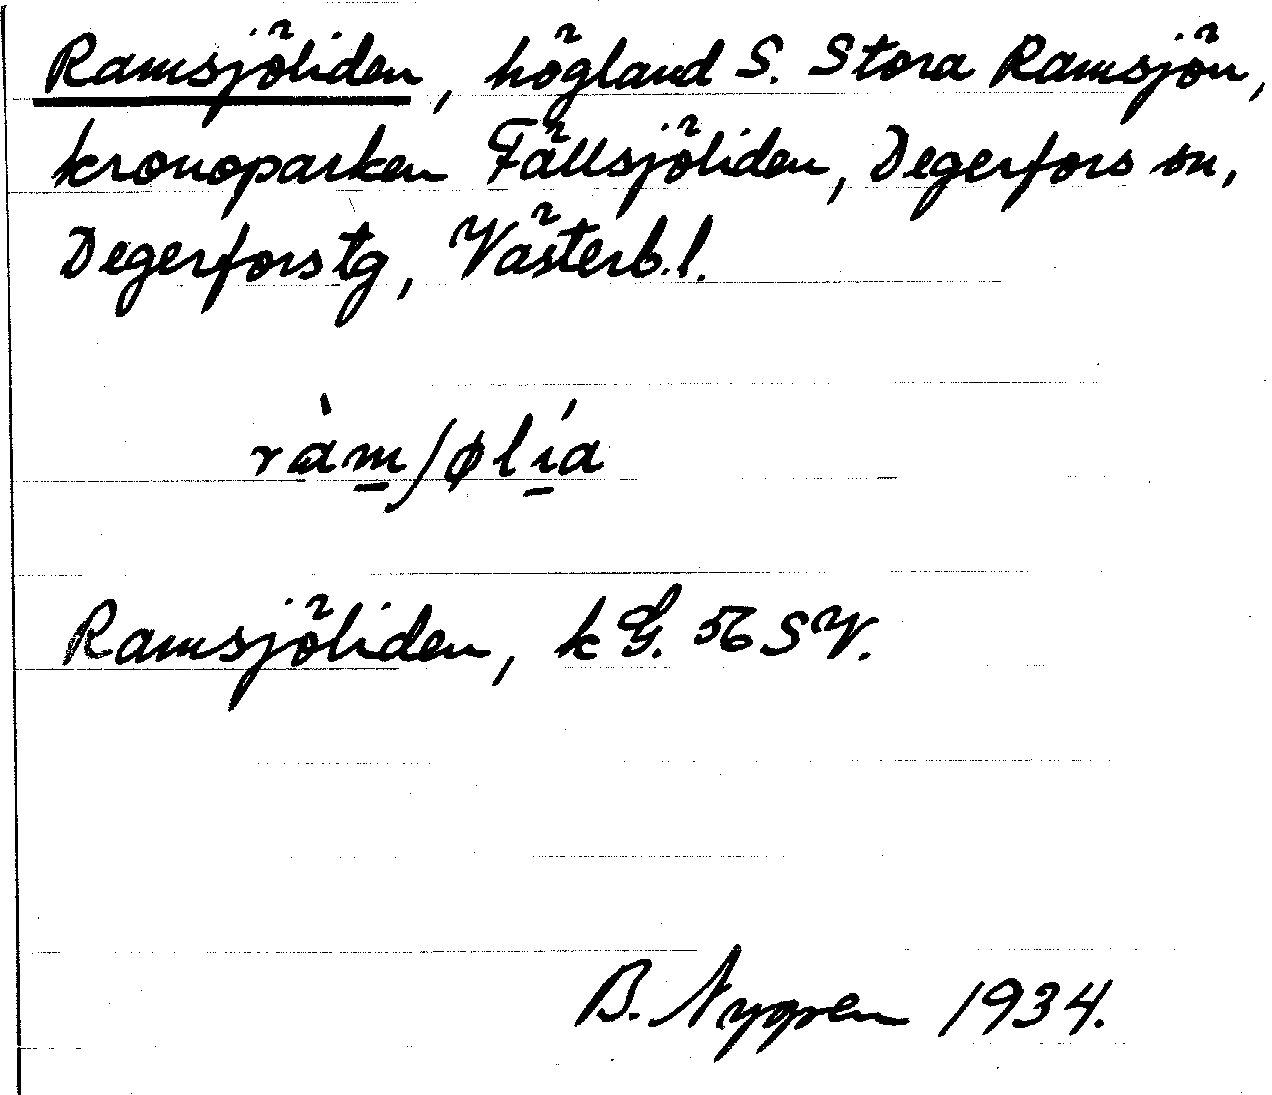 Ramsjöliden, högland S. Stora Ramsjön,
kronoparken Fällsjöliden, Degerfors sn,
Degerfors tg, Västerb. l.
ràm/ølía
Ramsjöliden, k G. 56 SV.
B. Nygren 1934.